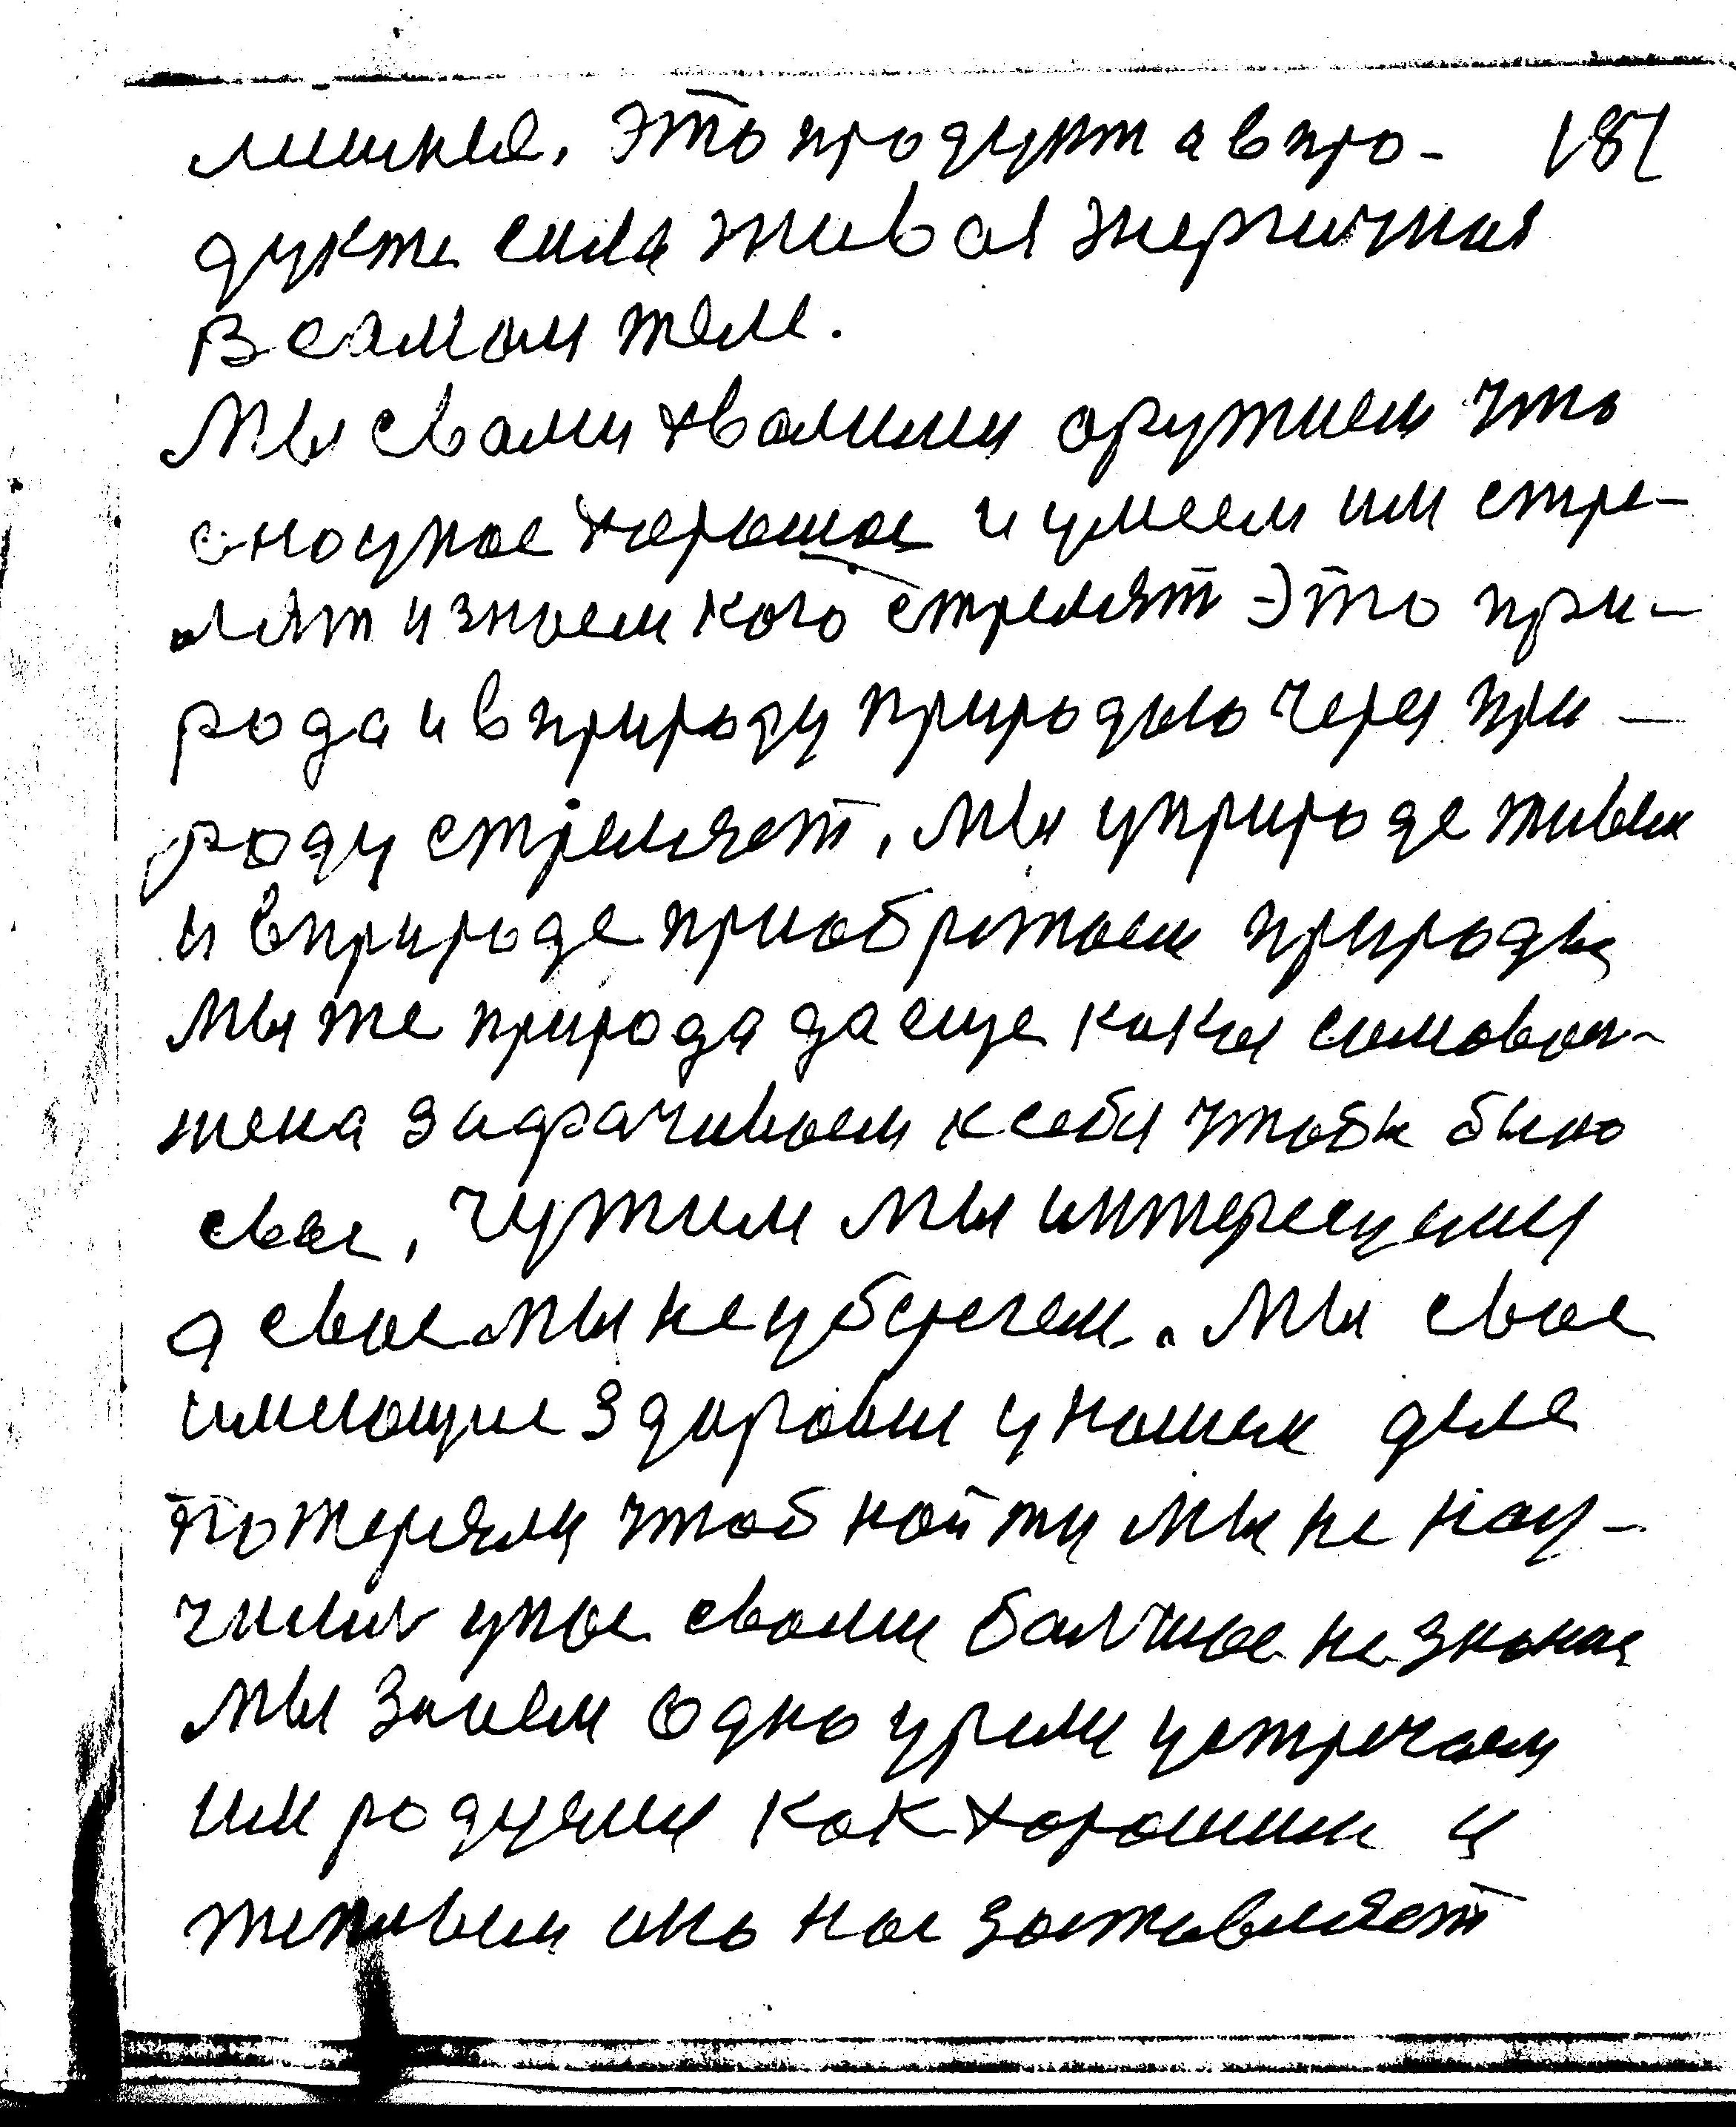 лишнее. Это продукт а в про- 181
дукте сила живая энергичная
в самом теле.
Мы с вами хвалимы оружием что
оно у нас хорошое и умеем им стре-
лят и знаем кого стрелят Это при-
рода и в природу природыю через при-
роду стреляет, мы у природе живем
и в природе приобретаем природы
мы же природа да еще
задрачиваем к себя чтобы было
свое, чужим мы интересуими
а свое мы не уберегем. Мы свое
имеющие здоровие у нашем деле
потеряли чтоб найти мы не нау-
чились у нас свами балчшое не знание
мы знаем одно уремя устречаем
им радуями как хорошим и
теплым оно нас заставляет